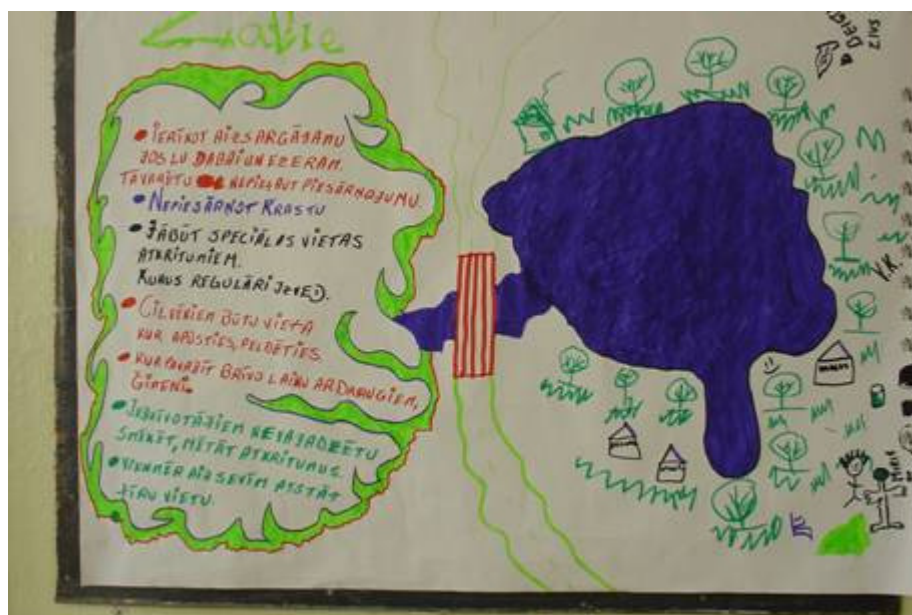 Zaļie
• IERĪKOT AIZSARGĀJAMU
JOSLU DABAI UN EZERAM.
NEPIEĻAUT PIESĀRŅOJUMU.
• NEPIESĀRŅOT KRASTU
• JĀBŪT SPECIĀLĀS VIETAS
ATKRITUMIEM.
KURUS REGULĀRI IZVED.
• CILVĒKIEM BŪTU VIETA
KUR APSĒSTIES, PELDĒTIES.
• KUR PAVADĪT BRĪVO LAIKU AR DRAUGIEM,
ĢIMENI.
• IEDZĪVOTĀJIEM NEVAJADZĒTU
SMĒĶĒT, MĒTĀT ATKRITUMUS.
• VIENMĒR AIZ SEVIM ATSTĀT
TĪRU VIETU.
V.K.